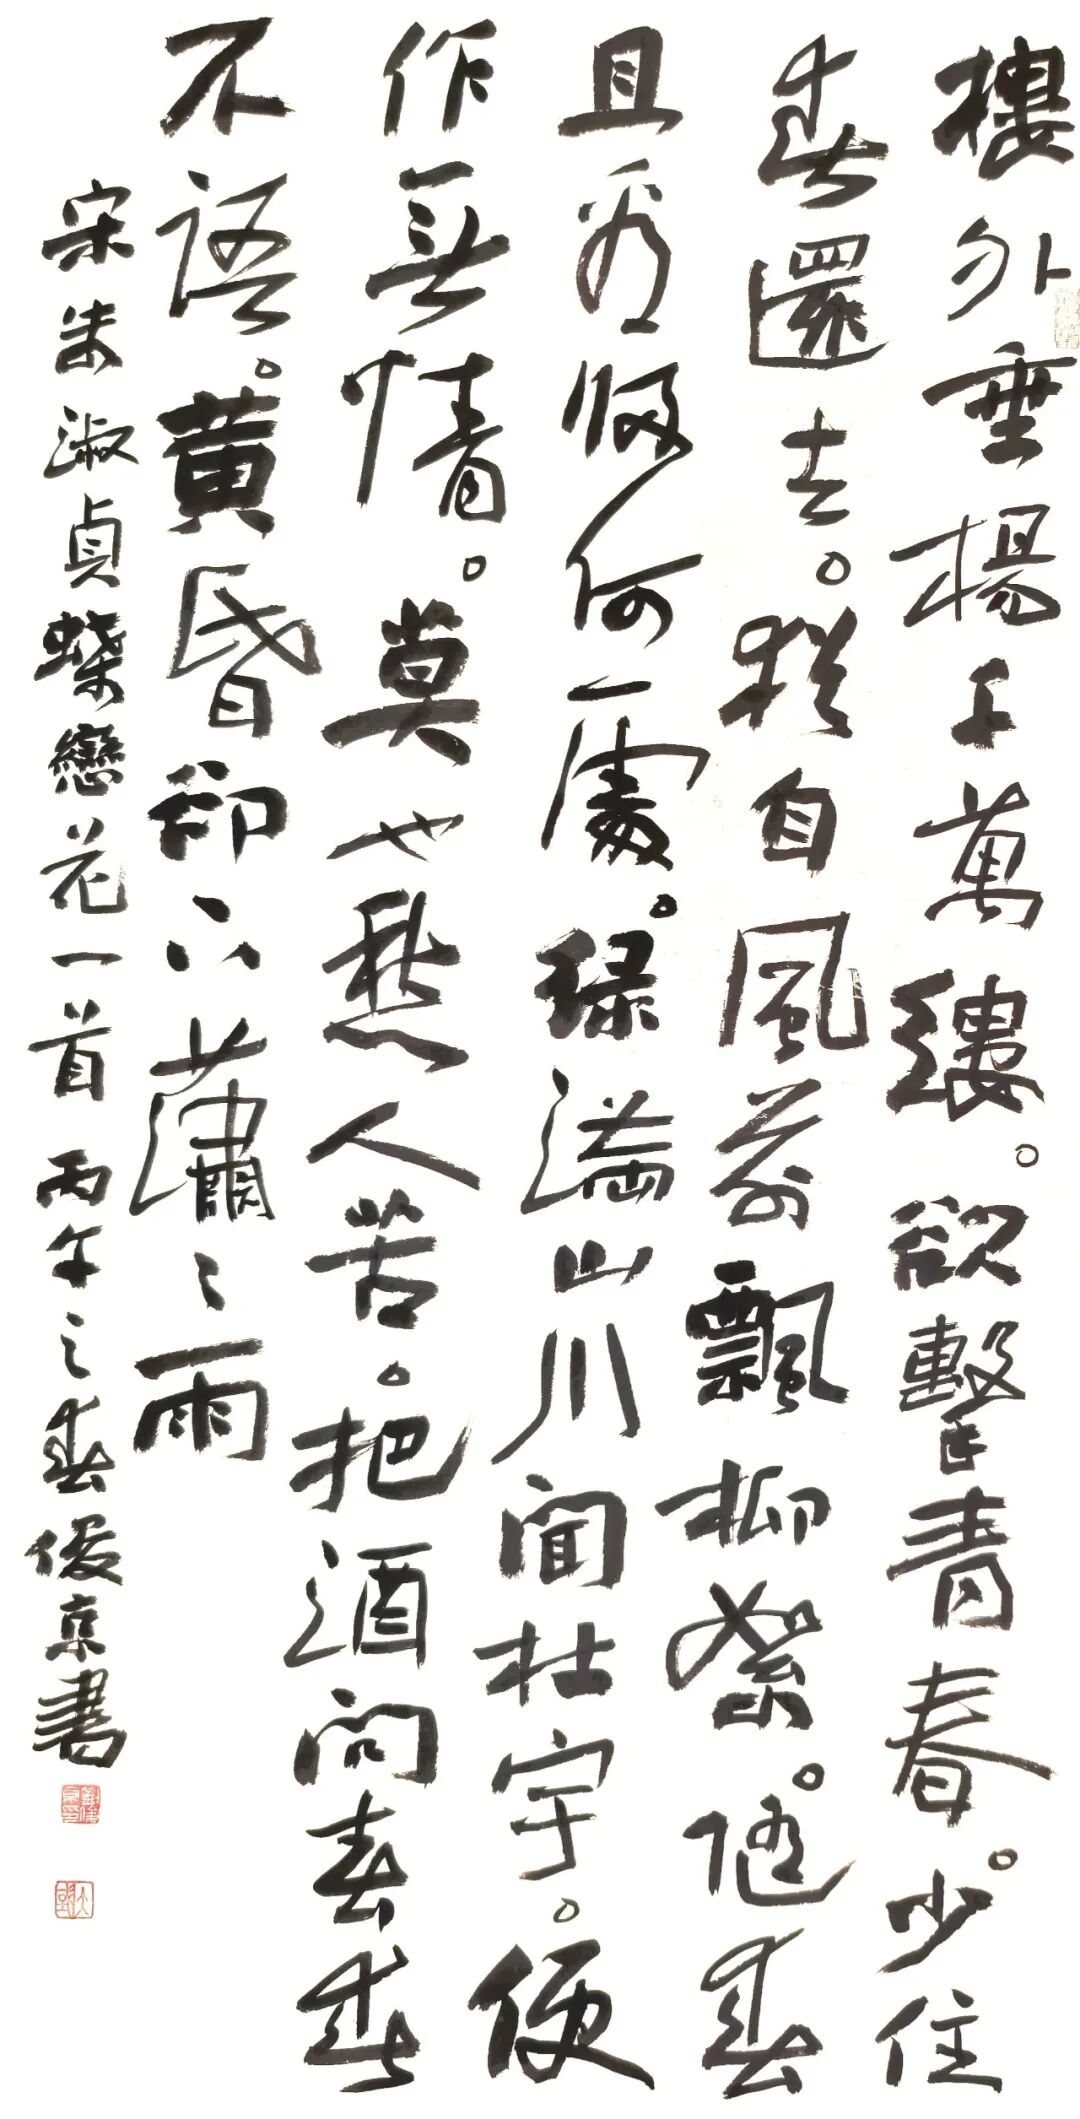 樓外垂楊千萬縷。欲擊青春。少住
春還去。猶自風前飄柳絮。隨春
且看歸何處。綠滿山川聞杜宇。便
作無情。莫也愁人苦。把酒問春春
不語。黃昏却下瀟々雨
宋朱淑貞蝶戀花一首 丙午之春俊京書